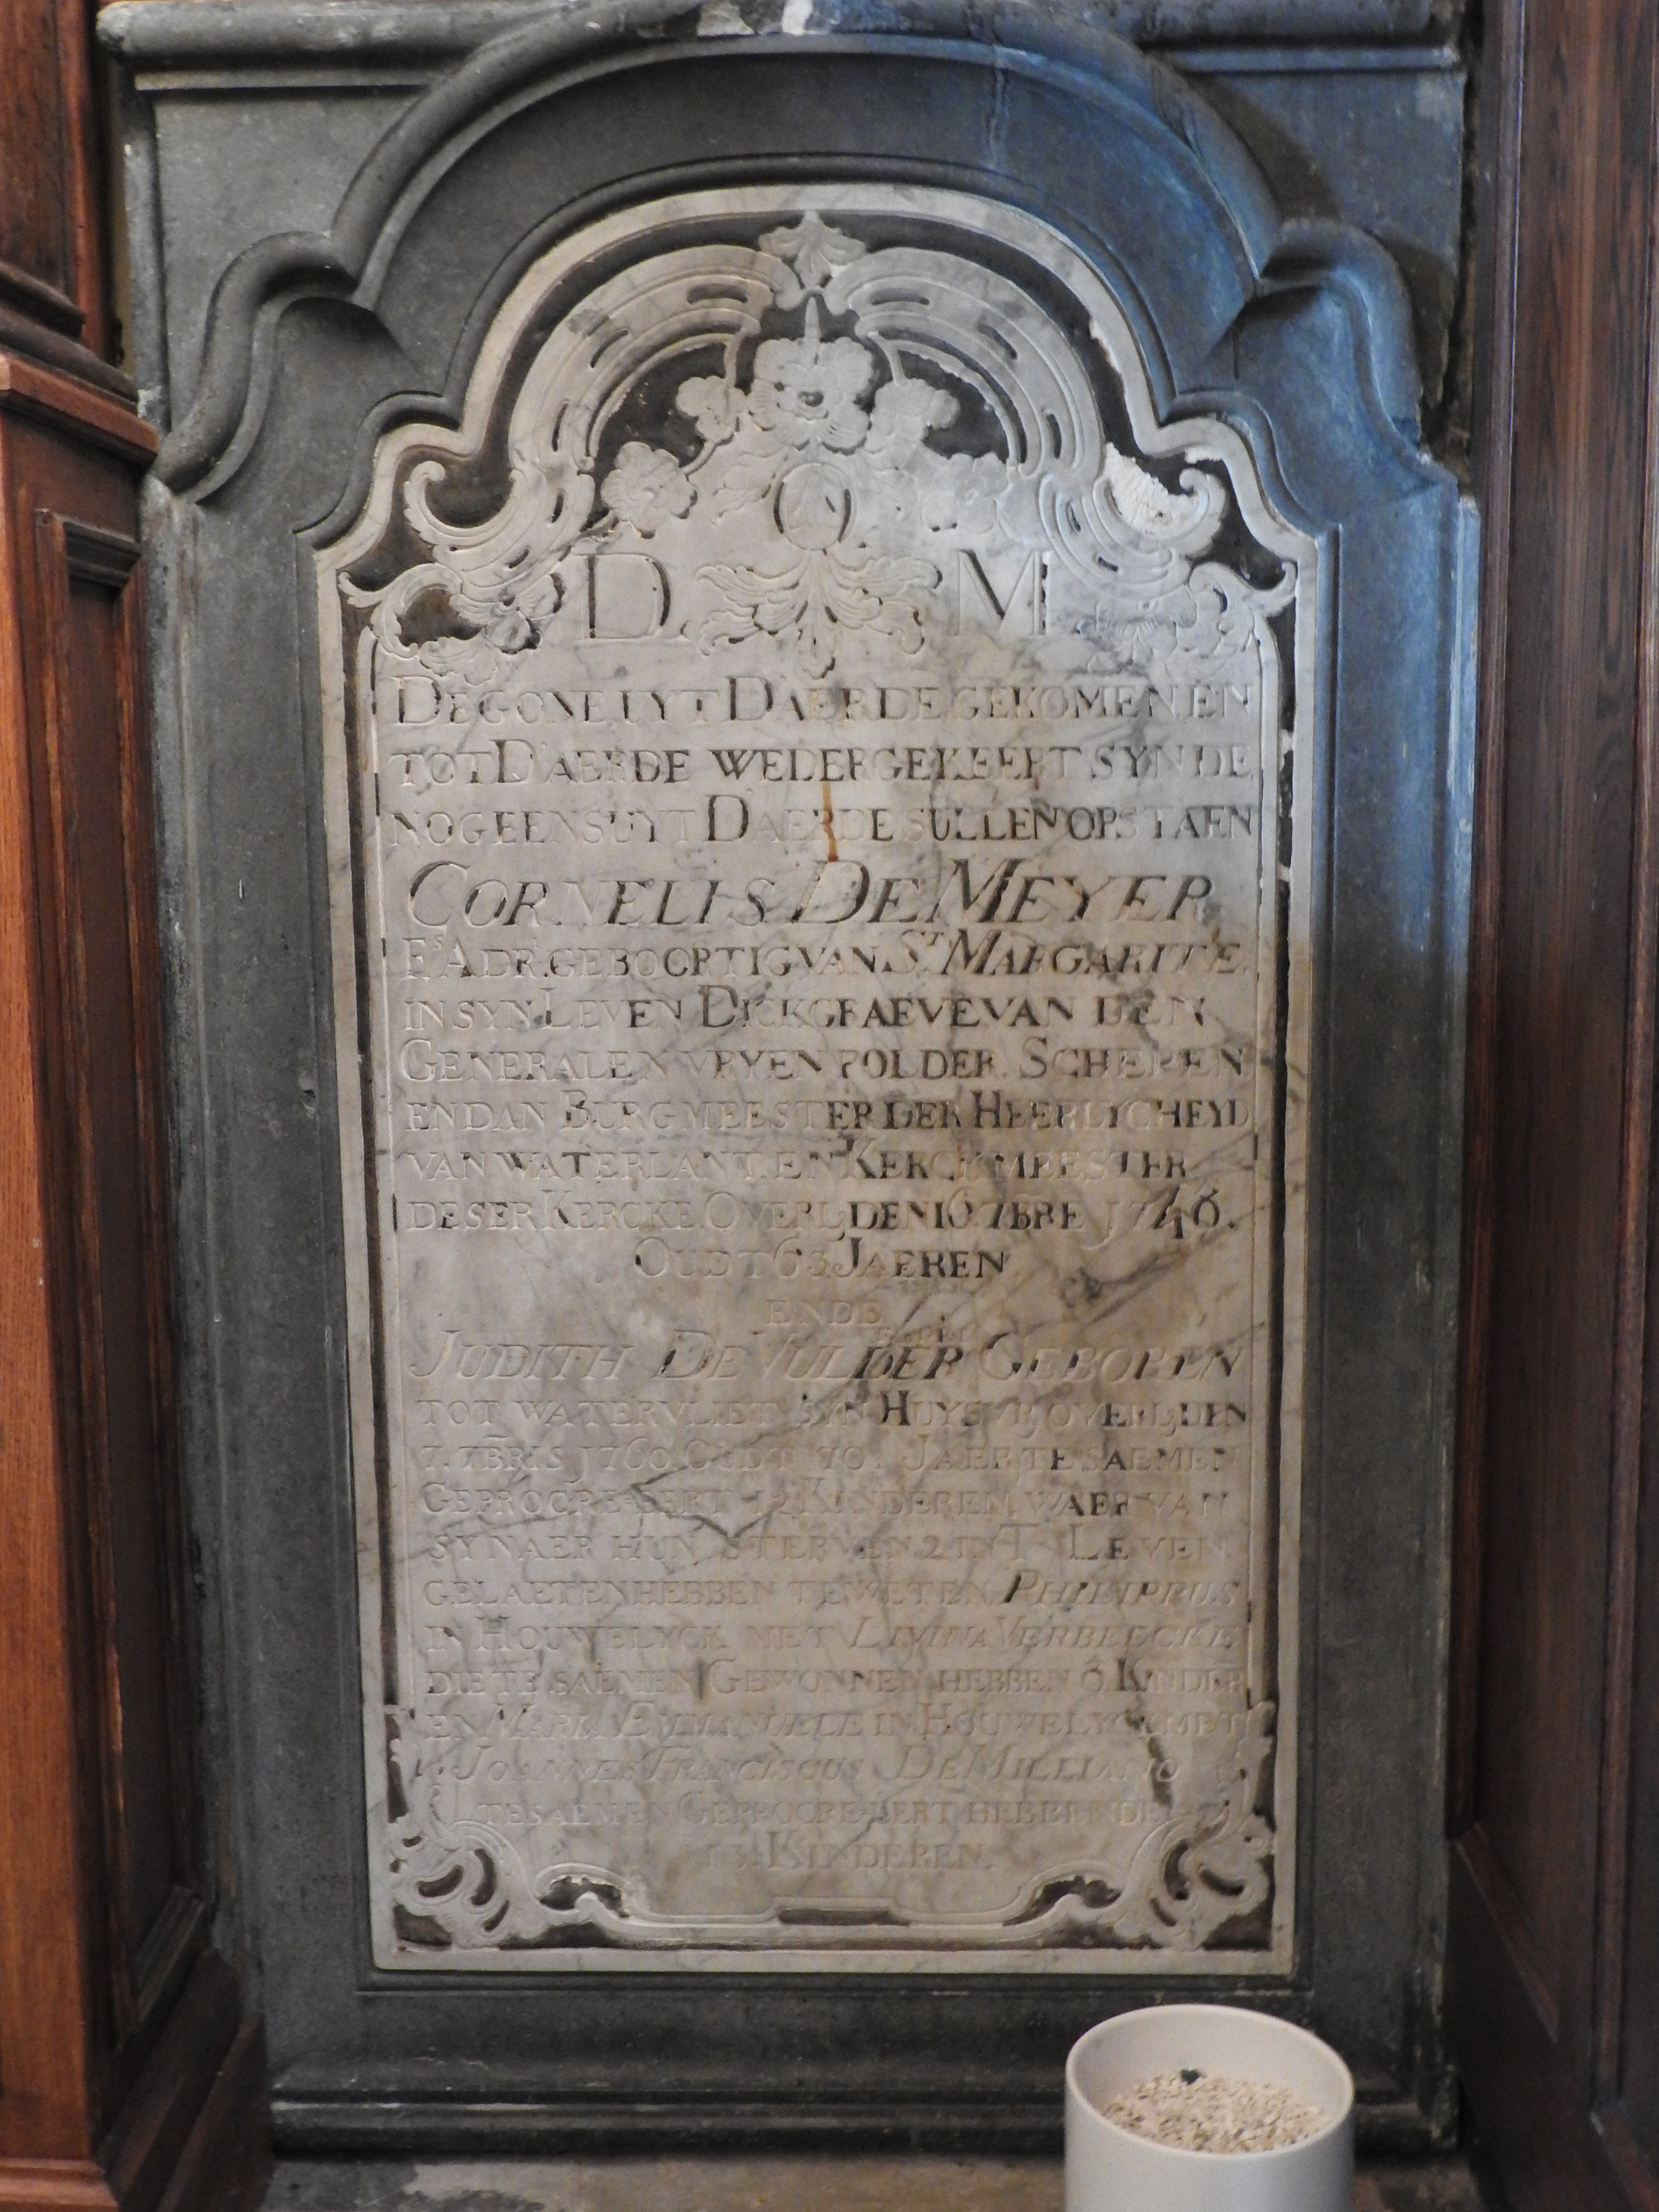 D. M.
DEGONE UYT D'AERDE GEKOMEN, EN
TOT D'AERDE WEDERGEKEERT SYNDE
NOGEENS UYT D'AERDE SULLEN OPSTAEN
CORNELIS DE MEYER
Fs ADR. GEBOORTIG VAN St MARGARITE.
IN SYN LEVEN DICKGRAEVE VAN DEN
GENERALEN VRYEN POLDER. SCHEPEN
EN DAN BURGMEESTER DER HEERLYCHEYD
VAN WATERLANT. EN KERCKMEESTER
DESER KERCKE. OVERL. DEN 16. 7BRE 1746.
OUDT 63 JAEREN
ENDE
JUDITH DE VULDER GEBOREN
TOT WATERVLIET SYN HUYSVR. OVERL. DEN
7. 7BRIS 1760. OUDT 70. JAER TESAEMEN
GEPROCREËERT 12 KINDEREN WAER VAN
SY NAER HUN STERVEN 2 IN T LEVEN
GELAETEN HEBBEN TE WETEN. PHILIPPUS
IN HOUWELYCK MET LIVINA VERBEECKE
DIE TE SAEMEN GEWONNEN HEBBEN 6. KINDER
EN MARIA EMMANUELE IN HOUWELYCK MET
JOANNES FRANCISCUS DE MILLIANO
TESAEMEN GEPROCREËERT HEBBENDE
13. KINDEREN.